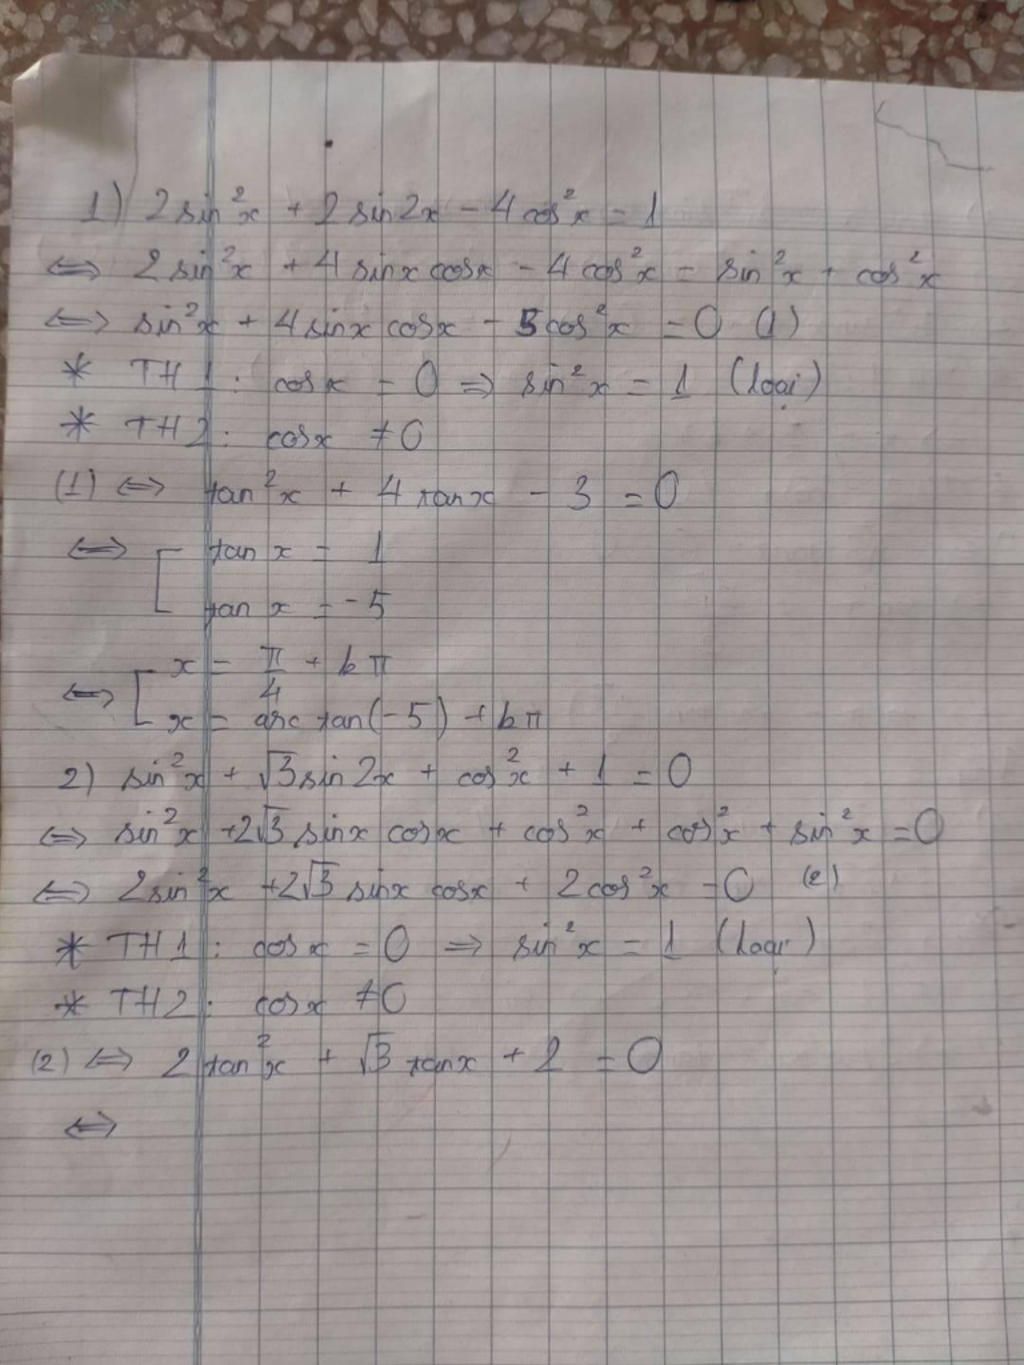 1) 2sin²x + 2sin2x - 4cos²x = 1
⇔ 2sin²x + 4sinxcosx - 4cos²x = sin²x + cos²x
⇔ sin²x + 4sinxcosx - 5cos²x = 0 (1)
* TH1: cosx = 0 ⇒ sin²x = 1 (loại)
* TH2: cosx ≠ 0
(1) ⇔ tan²x + 4tanx - 3 = 0
⇔ [ tanx = 1
tanx = -5
⇔ [ x = π/4 + kπ
x = arctan(-5) + kπ
2) sin²x + √3sin2x + cos²x + 1 = 0
⇔ sin²x + 2√3sinxcosx + cos²x + cos²x + sin²x = 0
⇔ 2sin²x + 2√3sinxcosx + 2cos²x = 0 (2)
* TH1: cosx = 0 ⇒ sin²x = 1 (loại)
* TH2: cosx ≠ 0
(2) ⇔ 2tan²x + √3tanx + 2 = 0
⇔